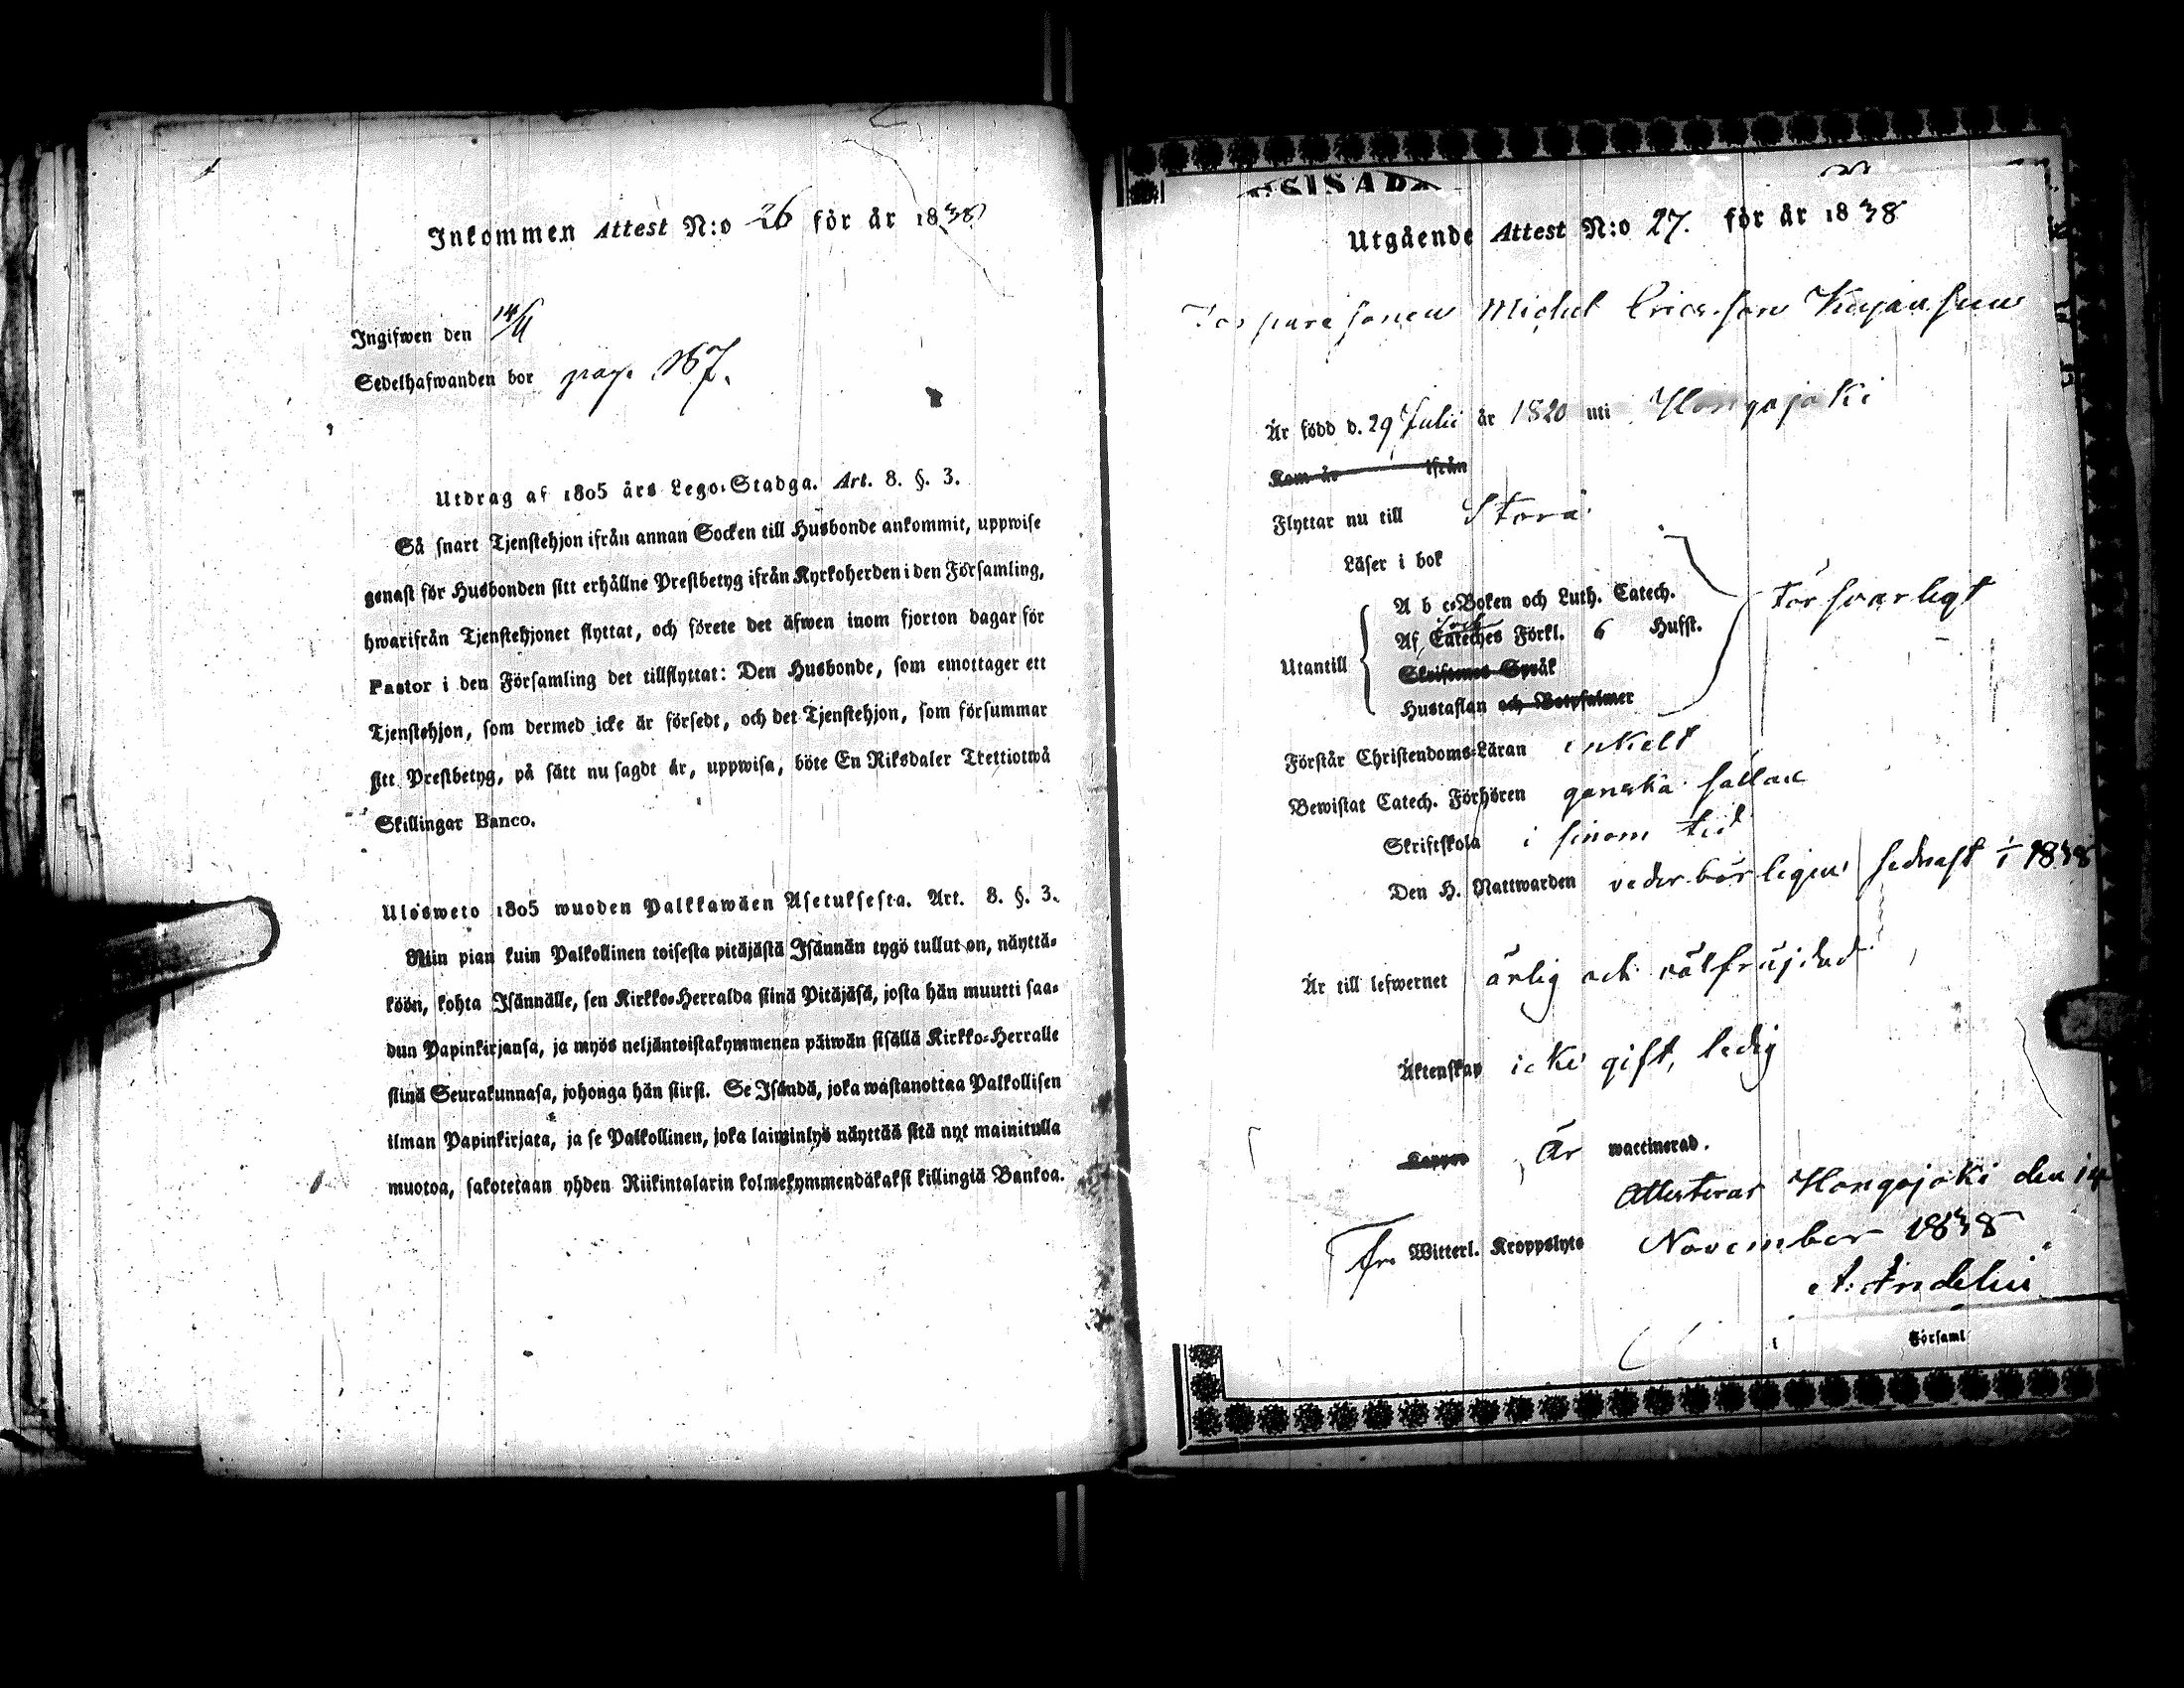 Inkommen Attest N:o 26 för år 1838
Ingifwen den 14/11
Sedelhafwanden bor pag. 167.
Utdrag af 1805 års Lego-Stadga. Art. 8. §. 3.
Så snart Tjenstehjon ifrån annan Socken till Husbonde ankommit, uppwise
genast för Husbonden sitt erhållne Prestbetyg ifrån Kyrkoherden i den Församling,
hwarifrån Tjenstehjonet flyttat, och förete det äfwen inom fjorton dagar för
Pastor i den Församling det tillflyttat: Den Husbonde, som emottager ett
Tjenstehjon, som dermed icke är försedt, och det Tjenstehjon, som försummar
sitt Prestbetyg, på sätt nu sagdt är, uppwisa, böte En Riksdaler Trettiotwå
Skillingar Banco.
Ulosweto 1805 wuoden Palkkawäen Asetuksesta. Art. 8. §. 3.
Niin pian kuin Palkollinen toisesta pitäjästä Isännän tygö tullut on, näyttä-
köön, kohta Isännälle, sen Kirkko-Herralda siinä Pitäjäsä, josta hän muutti saa-
dun Papinkirjansa, ja myös neljäntoistakymmenen päiwän sisällä Kirkko-Herralle
siinä Seurakunnasa, johonga hän siirsi. Se Isändä, joka wastanottaa Palkollisen
ilman Papinkirjata, ja se Palkollinen, joka laiminlyö näyttää sitä nyt mainitulla
muotoa, sakotetaan yhden Riikintalarin kolmekymmendäkaksi killingiä Bankoa.
SISAD
Utgående Attest N:o 27. för år 1838
Torparesonen Michel Ericsson
Är född d. 29 Julii år 1820 uti Hongojoki
Kom år ifrån
Flyttar nu till Storå
Läser i bok
A b c-Boken och Luth. Catech.
försvarligt
Af Cateches Förkl. 6 Hufst.
Utantill
Skriftenes Språk
Hustaflan och Botpsalmer
Förstår Christendoms-Läran enkelt
Bewistat Catech. Förhören ganska sällan
Skriftskola i sinom tid
Den H. Nattwarden vederbörligen sednast 1838
Är till lefwernet ärlig och välfräjdad
Äktenskap icke gift, ledig
Koppor Är waccinerad.
Attesterar Hongojoki den 14
Fr. Witterl. Kroppslyte November 1838
Församl